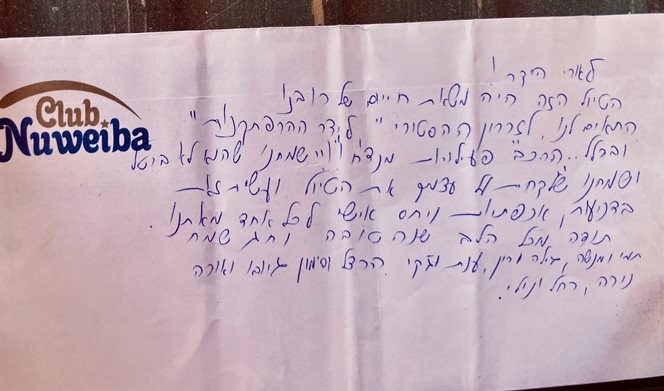 Club
Nuweiba
לאורי היקר !
הטיול הזה היה משאת חיים של רובנו
התאים לנו לזכרון ההסטורי "לידר ההרפתקנות"
ובכלל .. הרכב פעילויות שמחנו שהוא לא ביטל
ושמחנו שלקחת על עצמך את הטיול ועשית זאת
בדניעות, אכפתיות ויחס אישי לכל אחד מאתנו.
תודה מכל הלב שנה טובה וחג שמח
תמי ומנשה, גילה ורון, ענת וג'קי הרצל וסימון ואורה
נירה, רחל ונילי.